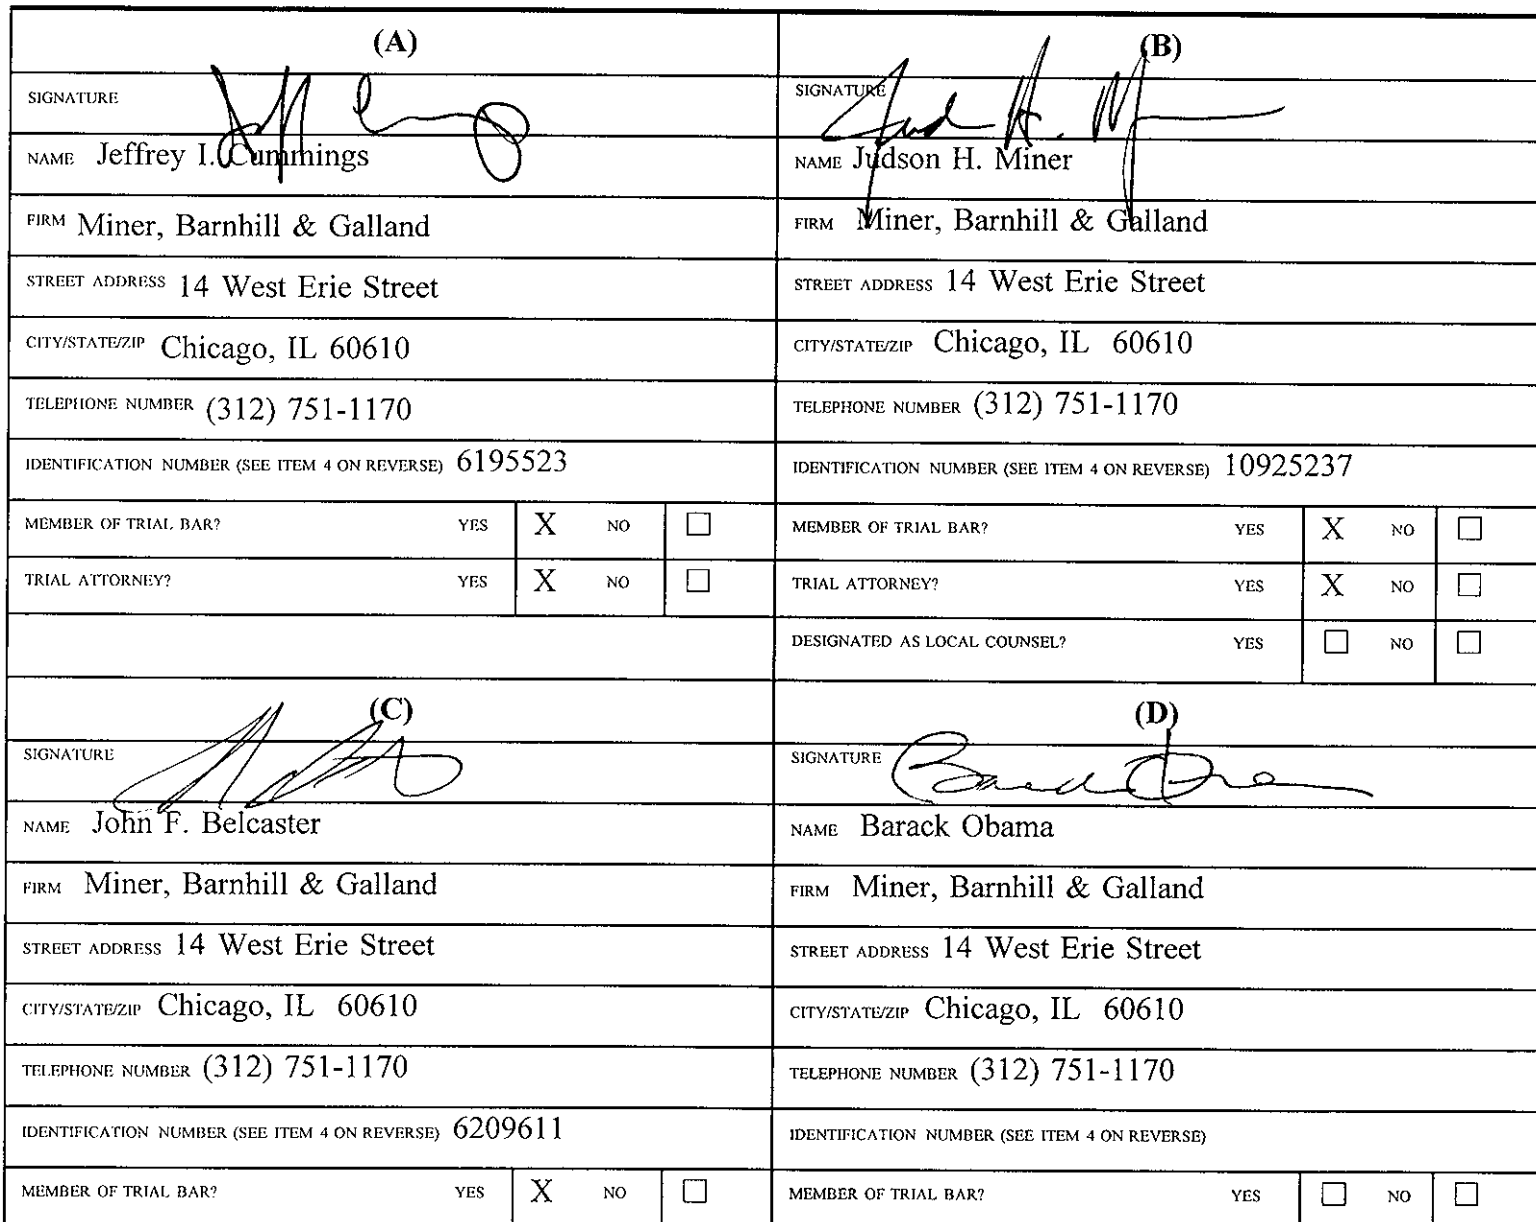 (A)
SIGNATURE
NAME Jeffrey I. Cummings
FIRM Miner, Barnhill & Galland
STREET ADDRESS 14 West Erie Street
CITY/STATE/ZIP Chicago, IL 60610
TELEPHONE NUMBER (312) 751-1170
IDENTIFICATION NUMBER (SEE ITEM 4 ON REVERSE) 6195523
MEMBER OF TRIAL BAR? YES X NO ☐
TRIAL ATTORNEY? YES X NO ☐
(B)
SIGNATURE Jud H. M
NAME Judson H. Miner
FIRM Miner, Barnhill & Galland
STREET ADDRESS 14 West Erie Street
CITY/STATE/ZIP Chicago, IL 60610
TELEPHONE NUMBER (312) 751-1170
IDENTIFICATION NUMBER (SEE ITEM 4 ON REVERSE) 10925237
MEMBER OF TRIAL BAR? YES X NO ☐
TRIAL ATTORNEY? YES X NO ☐
DESIGNATED AS LOCAL COUNSEL? YES ☐ NO ☐
(C)
SIGNATURE
NAME John F. Belcaster
FIRM Miner, Barnhill & Galland
STREET ADDRESS 14 West Erie Street
CITY/STATE/ZIP Chicago, IL 60610
TELEPHONE NUMBER (312) 751-1170
IDENTIFICATION NUMBER (SEE ITEM 4 ON REVERSE) 6209611
MEMBER OF TRIAL BAR? YES X NO ☐
(D)
SIGNATURE Barack Obama
NAME Barack Obama
FIRM Miner, Barnhill & Galland
STREET ADDRESS 14 West Erie Street
CITY/STATE/ZIP Chicago, IL 60610
TELEPHONE NUMBER (312) 751-1170
IDENTIFICATION NUMBER (SEE ITEM 4 ON REVERSE)
MEMBER OF TRIAL BAR? YES ☐ NO ☐